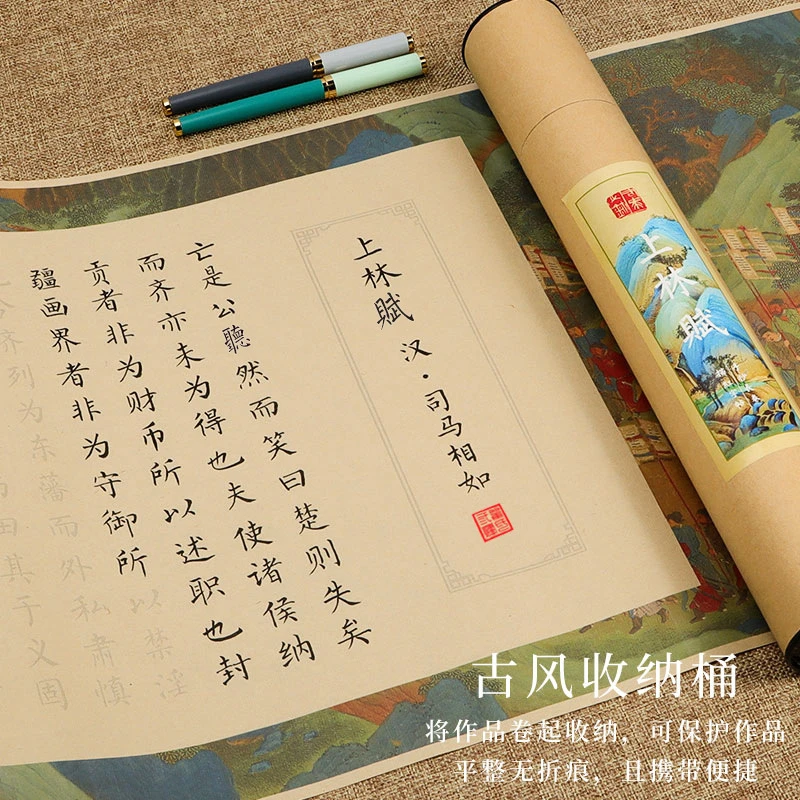 上林賦 汉·司马相如
亡是公聽然而笑曰楚则失矣
而齐亦未为得也夫使诸侯纳
贡者非为财币所以述职也封
疆画界者非为守御所以禁淫
齐列为东藩而外私肃慎
田其于义固
上林賦
古风收纳桶
将作品卷起收纳，可保护作品
平整无折痕，且携带便捷